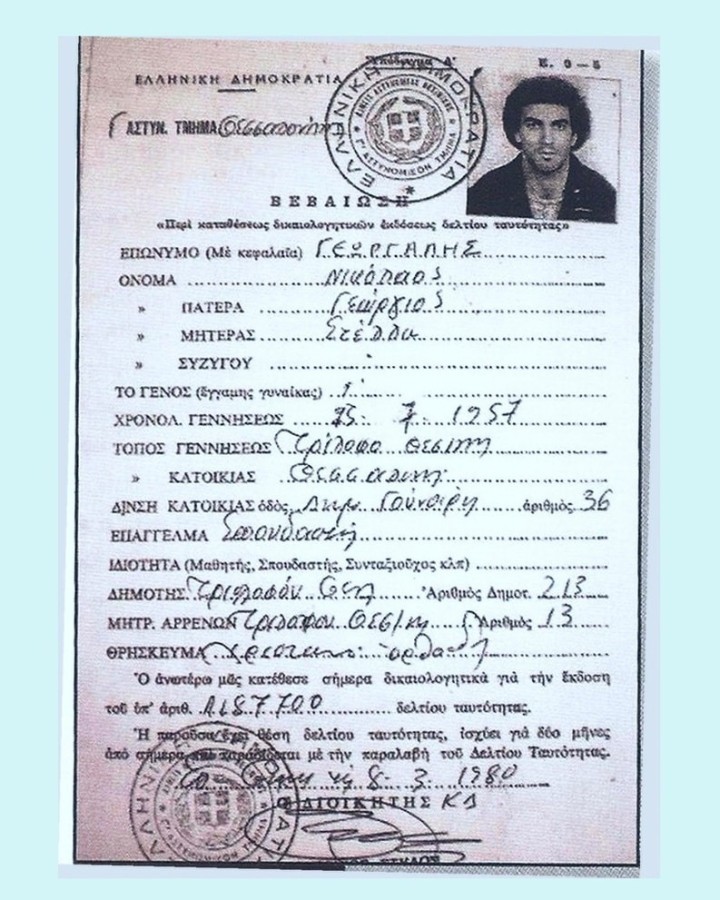 Ὑπόδειγμα Α'
Ε. 9 — 5
ΕΛΛΗΝΙΚΗ ΔΗΜΟΚΡΑΤΙΑ
ΑΣΤΥΝ. ΤΜΗΜΑ Θεσσαλονίκης
ΕΛΛΗΝΙΚΗ ΔΗΜΟΚΡΑΤΙΑ
ΒΕΒΑΙΩΣΗ
«Περὶ καταθέσεως δικαιολογητικῶν ἐκδόσεως δελτίου ταυτότητας»
ΕΠΩΝΥΜΟ (Μὲ κεφαλαῖα) ΓΕΩΡΓΑΛΗΣ
ΟΝΟΜΑ Νικόλαος
» ΠΑΤΕΡΑ Γεώργιος
» ΜΗΤΕΡΑΣ Στέλλα
» ΣΥΖΥΓΟΥ
ΤΟ ΓΕΝΟΣ (ἔγγαμης γυναίκας)
ΧΡΟΝΟΛ. ΓΕΝΝΗΣΕΩΣ 7. 1957
ΤΟΠΟΣ ΓΕΝΝΗΣΕΩΣ Τρίλοφο Θεσ/νίκη
» ΚΑΤΟΙΚΙΑΣ Θεσσαλονίκη
Δ)ΝΣΗ ΚΑΤΟΙΚΙΑΣ ὁδὸς Δημ. Γούναρη ἀριθμὸς 36
ΕΠΑΓΓΕΛΜΑ Σπουδαστὴς
ΙΔΙΟΤΗΤΑ (Μαθητής, Σπουδαστής, Συνταξιοῦχος κλπ)
ΔΗΜΟΤΗΣ Τριλόφου Θεσ/ Ἀριθμὸς Δημοτ. 213
ΜΗΤΡ. ΑΡΡΕΝΩΝ Τριλόφου Θεσ/νίκης Ἀριθμὸς 13
ΘΡΗΣΚΕΥΜΑ Χριστιανὸς ὀρθόδοξος
Ὁ ἀνωτέρω μᾶς κατέθεσε σήμερα δικαιολογητικὰ γιὰ τὴν ἔκδοση
τοῦ ὑπ' ἀριθ. Λ187700 δελτίου ταυτότητας.
Ἡ παροῦσα ἔχει θέση δελτίου ταυτότητας, ἰσχύει γιὰ δύο μῆνες
ἀπὸ σήμερα καὶ παραδίδεται μὲ τὴν παραλαβὴ τοῦ Δελτίου Ταυτότητας.
τῇ 8. 3. 1980
Ο ΔΙΟΙΚΗΤΗΣ ΚΔ